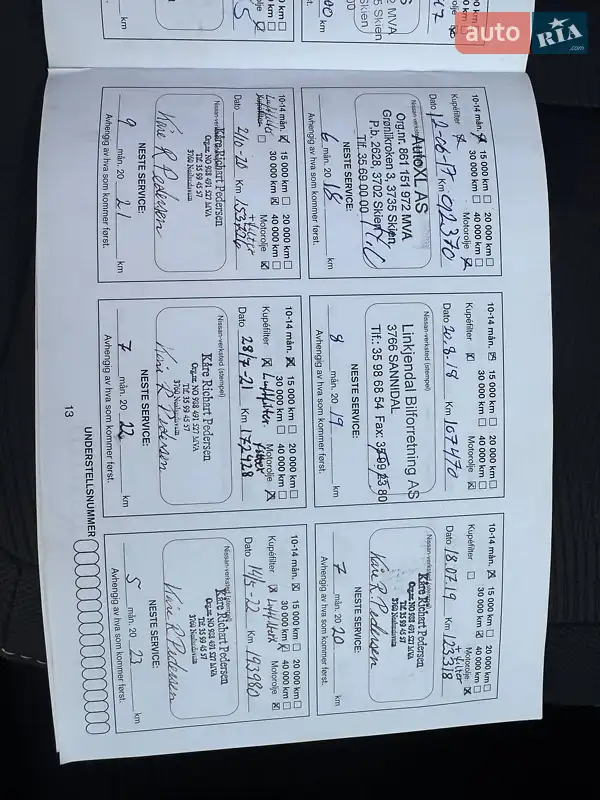 auto RIA.com
10-14 mån. 15 000 km 20 000 km
30 000 km 40 000 km
Kupéfilter Motorolje
Dato 12-06-17 Km 092370
Nissan-verksted (stempel)
AutoXL AS
Org.nr. 861 151 972 MVA
Grønlikroken 3, 3735 Skien
P.b. 2628, 3702 Skien
Tlf. 35 59 00 00
NESTE SERVICE:
6 mån. 20 18 km
Avhengig av hva som kommer først.
10-14 mån. 15 000 km 20 000 km
30 000 km 40 000 km
Kupéfilter Motorolje
Dato 20.8.18 Km 107470
Nissan-verksted (stempel)
Linkjendal Bilforretning AS
3766 SANNIDAL
Tlf.: 35 98 68 54 Fax: 35 99 23 80
NESTE SERVICE:
8 mån. 20 19 km
Avhengig av hva som kommer først.
10-14 mån. 15 000 km 20 000 km
30 000 km 40 000 km
Kupéfilter Motorolje
+ filter
Dato 18.07.19 Km 123318
Nissan-verksted (stempel)
Kåre Richart Pedersen
Org.nr. NO 988 491 527 MVA
Tlf 35 99 45 57
Kåre R Pedersen
NESTE SERVICE:
7 mån. 20 20 km
Avhengig av hva som kommer først.
10-14 mån. 15 000 km 20 000 km
30 000 km 40 000 km
Luftfilter
Kupéfilter Motorolje
+ filter
Dato 21/10-20 Km 153726
Nissan-verksted (stempel)
Kåre Richart Pedersen
Org.nr. NO 988 491 527 MVA
Tlf 35 99 45 57
Kåre R Pedersen
NESTE SERVICE:
9 mån. 20 21 km
Avhengig av hva som kommer først.
10-14 mån. 15 000 km 20 000 km
30 000 km 40 000 km
Kupéfilter Luftfilter Motorolje
filter
Dato 28/7-21 Km 172928
Nissan-verksted (stempel)
Kåre Richart Pedersen
Org.nr. NO 988 491 527 MVA
Tlf 35 99 45 57
Kåre R Pedersen
NESTE SERVICE:
7 mån. 20 22 km
Avhengig av hva som kommer først.
10-14 mån. 15 000 km 20 000 km
30 000 km 40 000 km
Kupéfilter Luftfilter Motorolje
Dato 14/5-22 Km 193980
Nissan-verksted (stempel)
Kåre Richart Pedersen
Org.nr. NO 988 491 527 MVA
Tlf 35 99 45 57
Kåre R Pedersen
NESTE SERVICE:
5 mån. 20 23 km
Avhengig av hva som kommer først.
13
UNDERSTELLSNUMMER